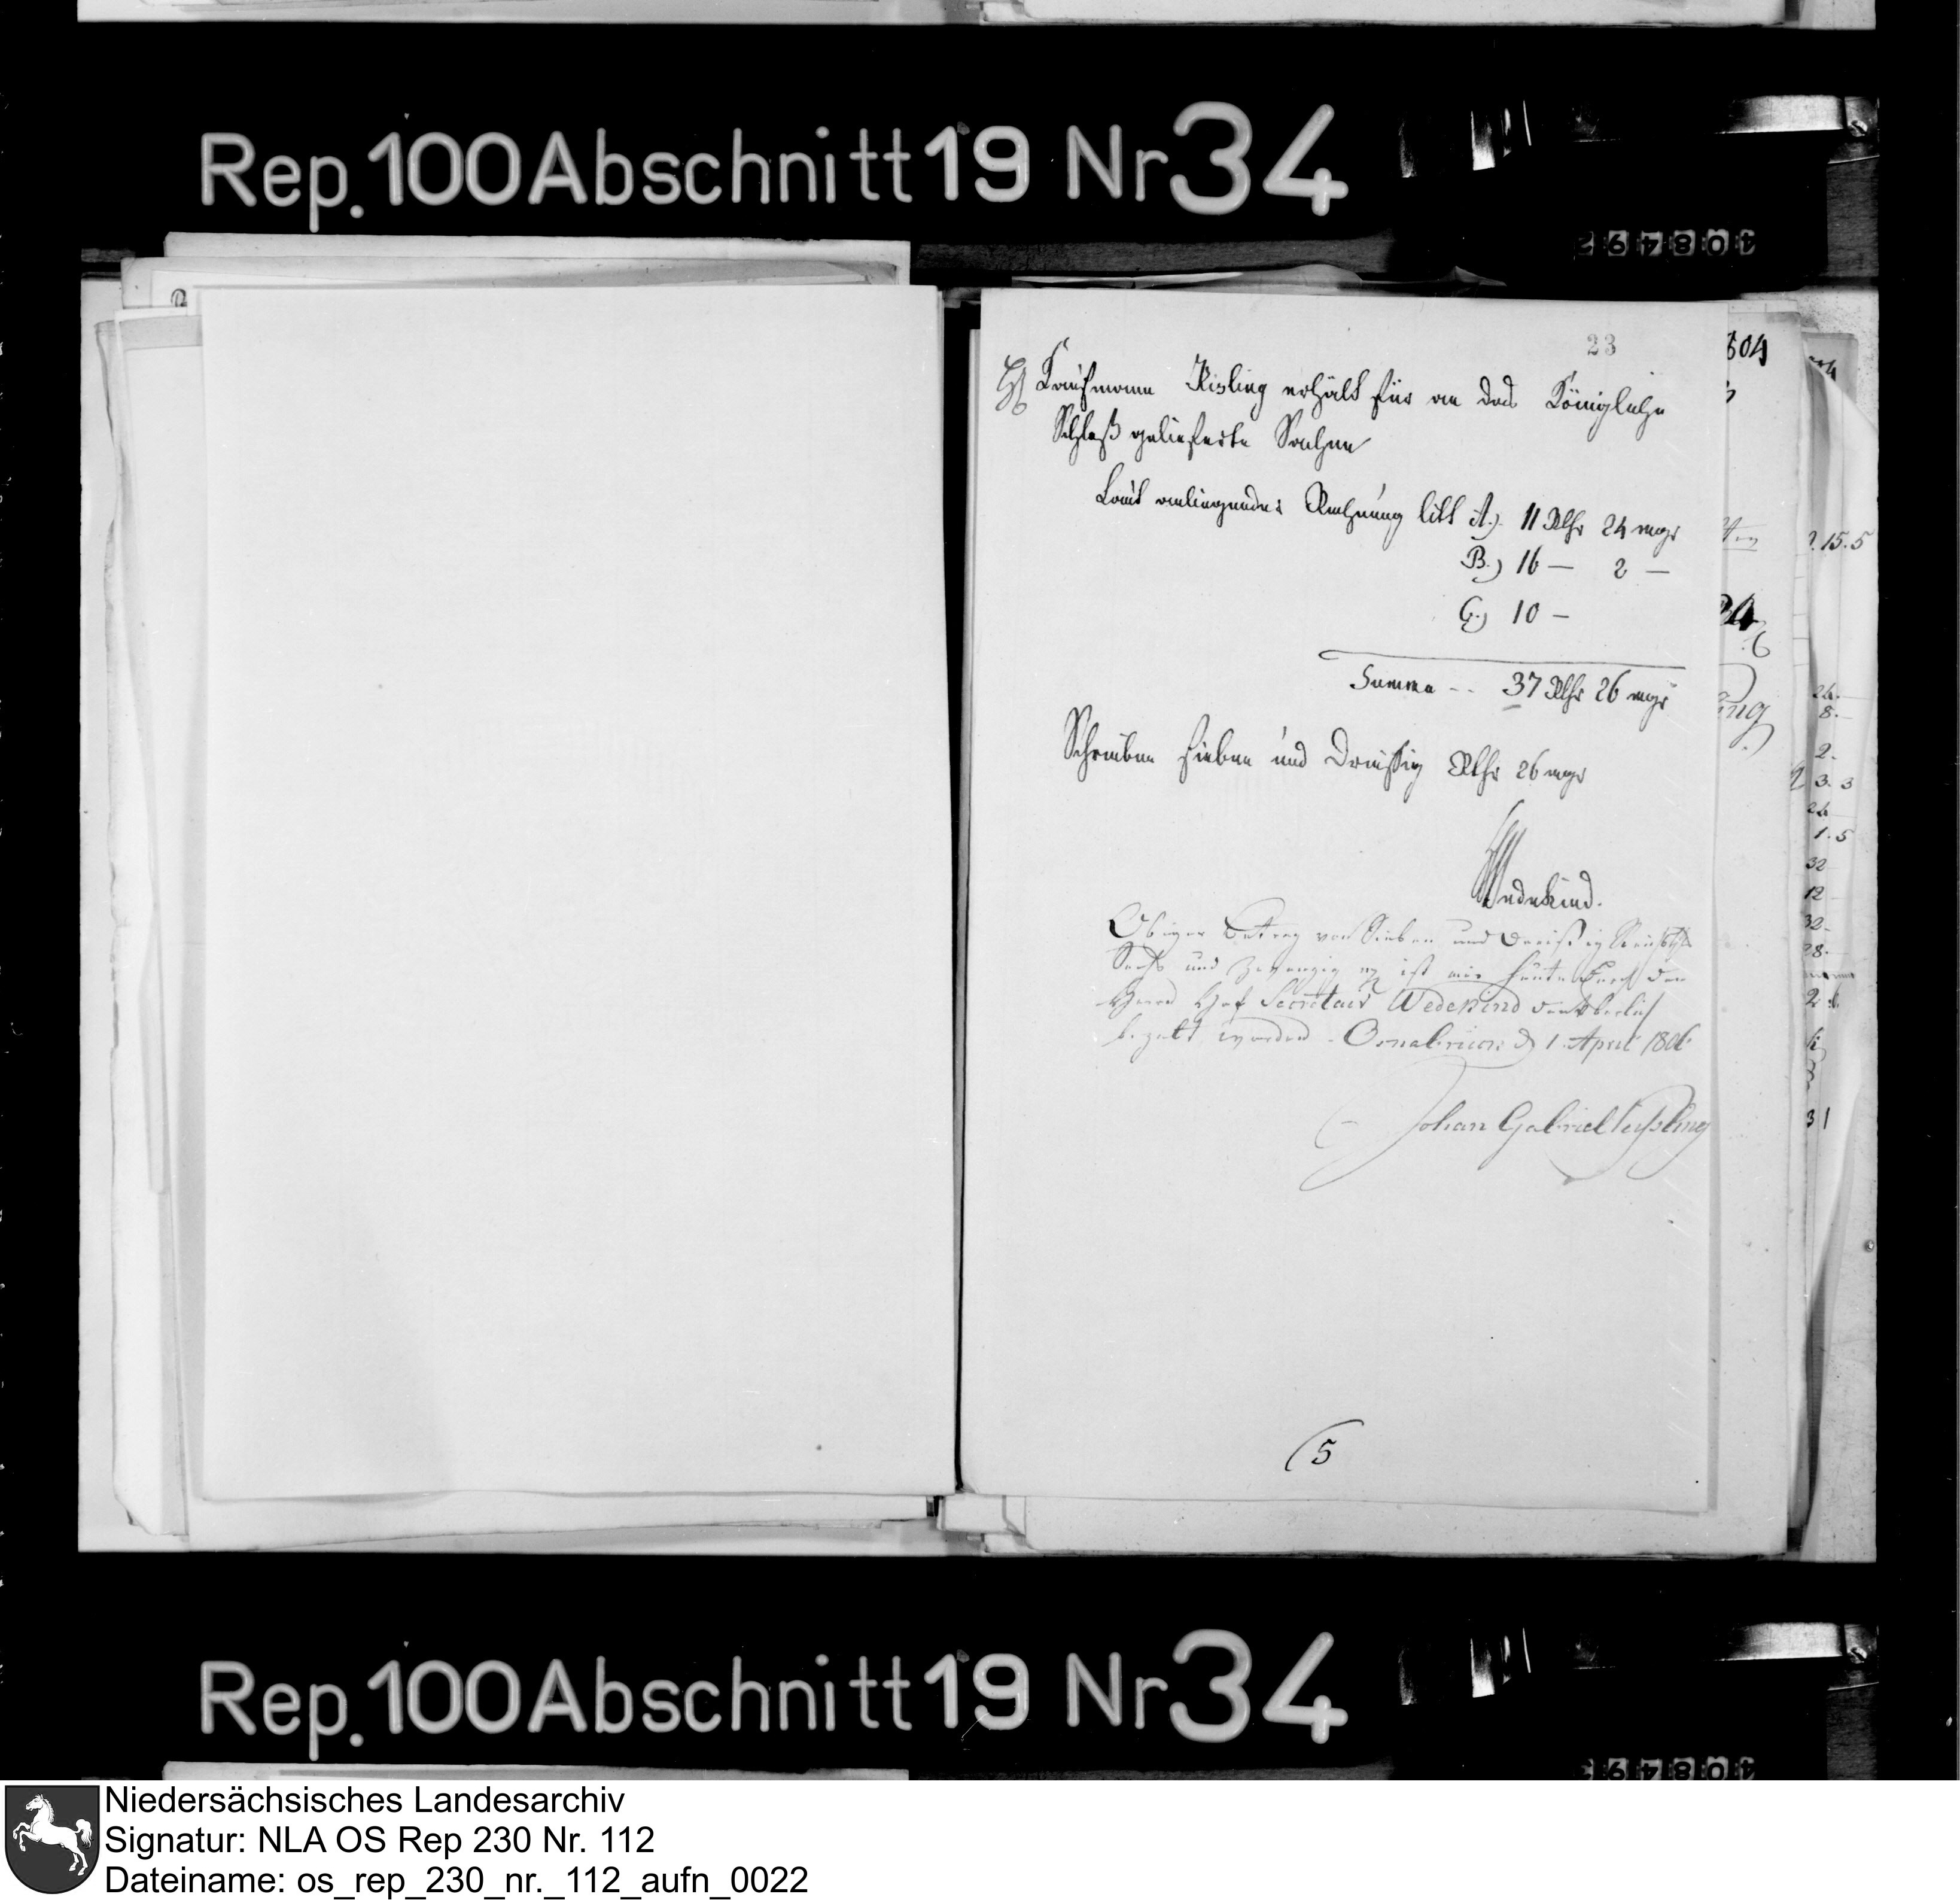 Rep. 100 Abschnitt 19 Nr 34
408492
23
504
Hl Kaufmann Kisling erhält für an das Königliche
Schloß gelieferte Sachen
Laut anliegender Rechnung litt A.) 11 Rthr 24 mgr
B.) 16 — 2 —
C.) 10 —
Summa -- 37 Rthr 26 mgr
Schreiben sieben und Dreißig Rthr 26 mgr
Wedekind.
Obiger Betrag von Sieben und Dreißig Reichsth
Sechs und Zwanzig mg ist mir heute durch den
Herrn Hof Secretair Wedekind
bezalt worden. Osnabrück d 1. April 1806
Johan Gabriel
(5
? 15.5
24.
8.
2.
3. 3
24
1. 5
32
12
32.
28.
2
31
Rep. 100 Abschnitt 19 Nr 34
408493
Niedersächsisches Landesarchiv
Signatur: NLA OS Rep 230 Nr. 112
Dateiname: os_rep_230_nr._112_aufn_0022